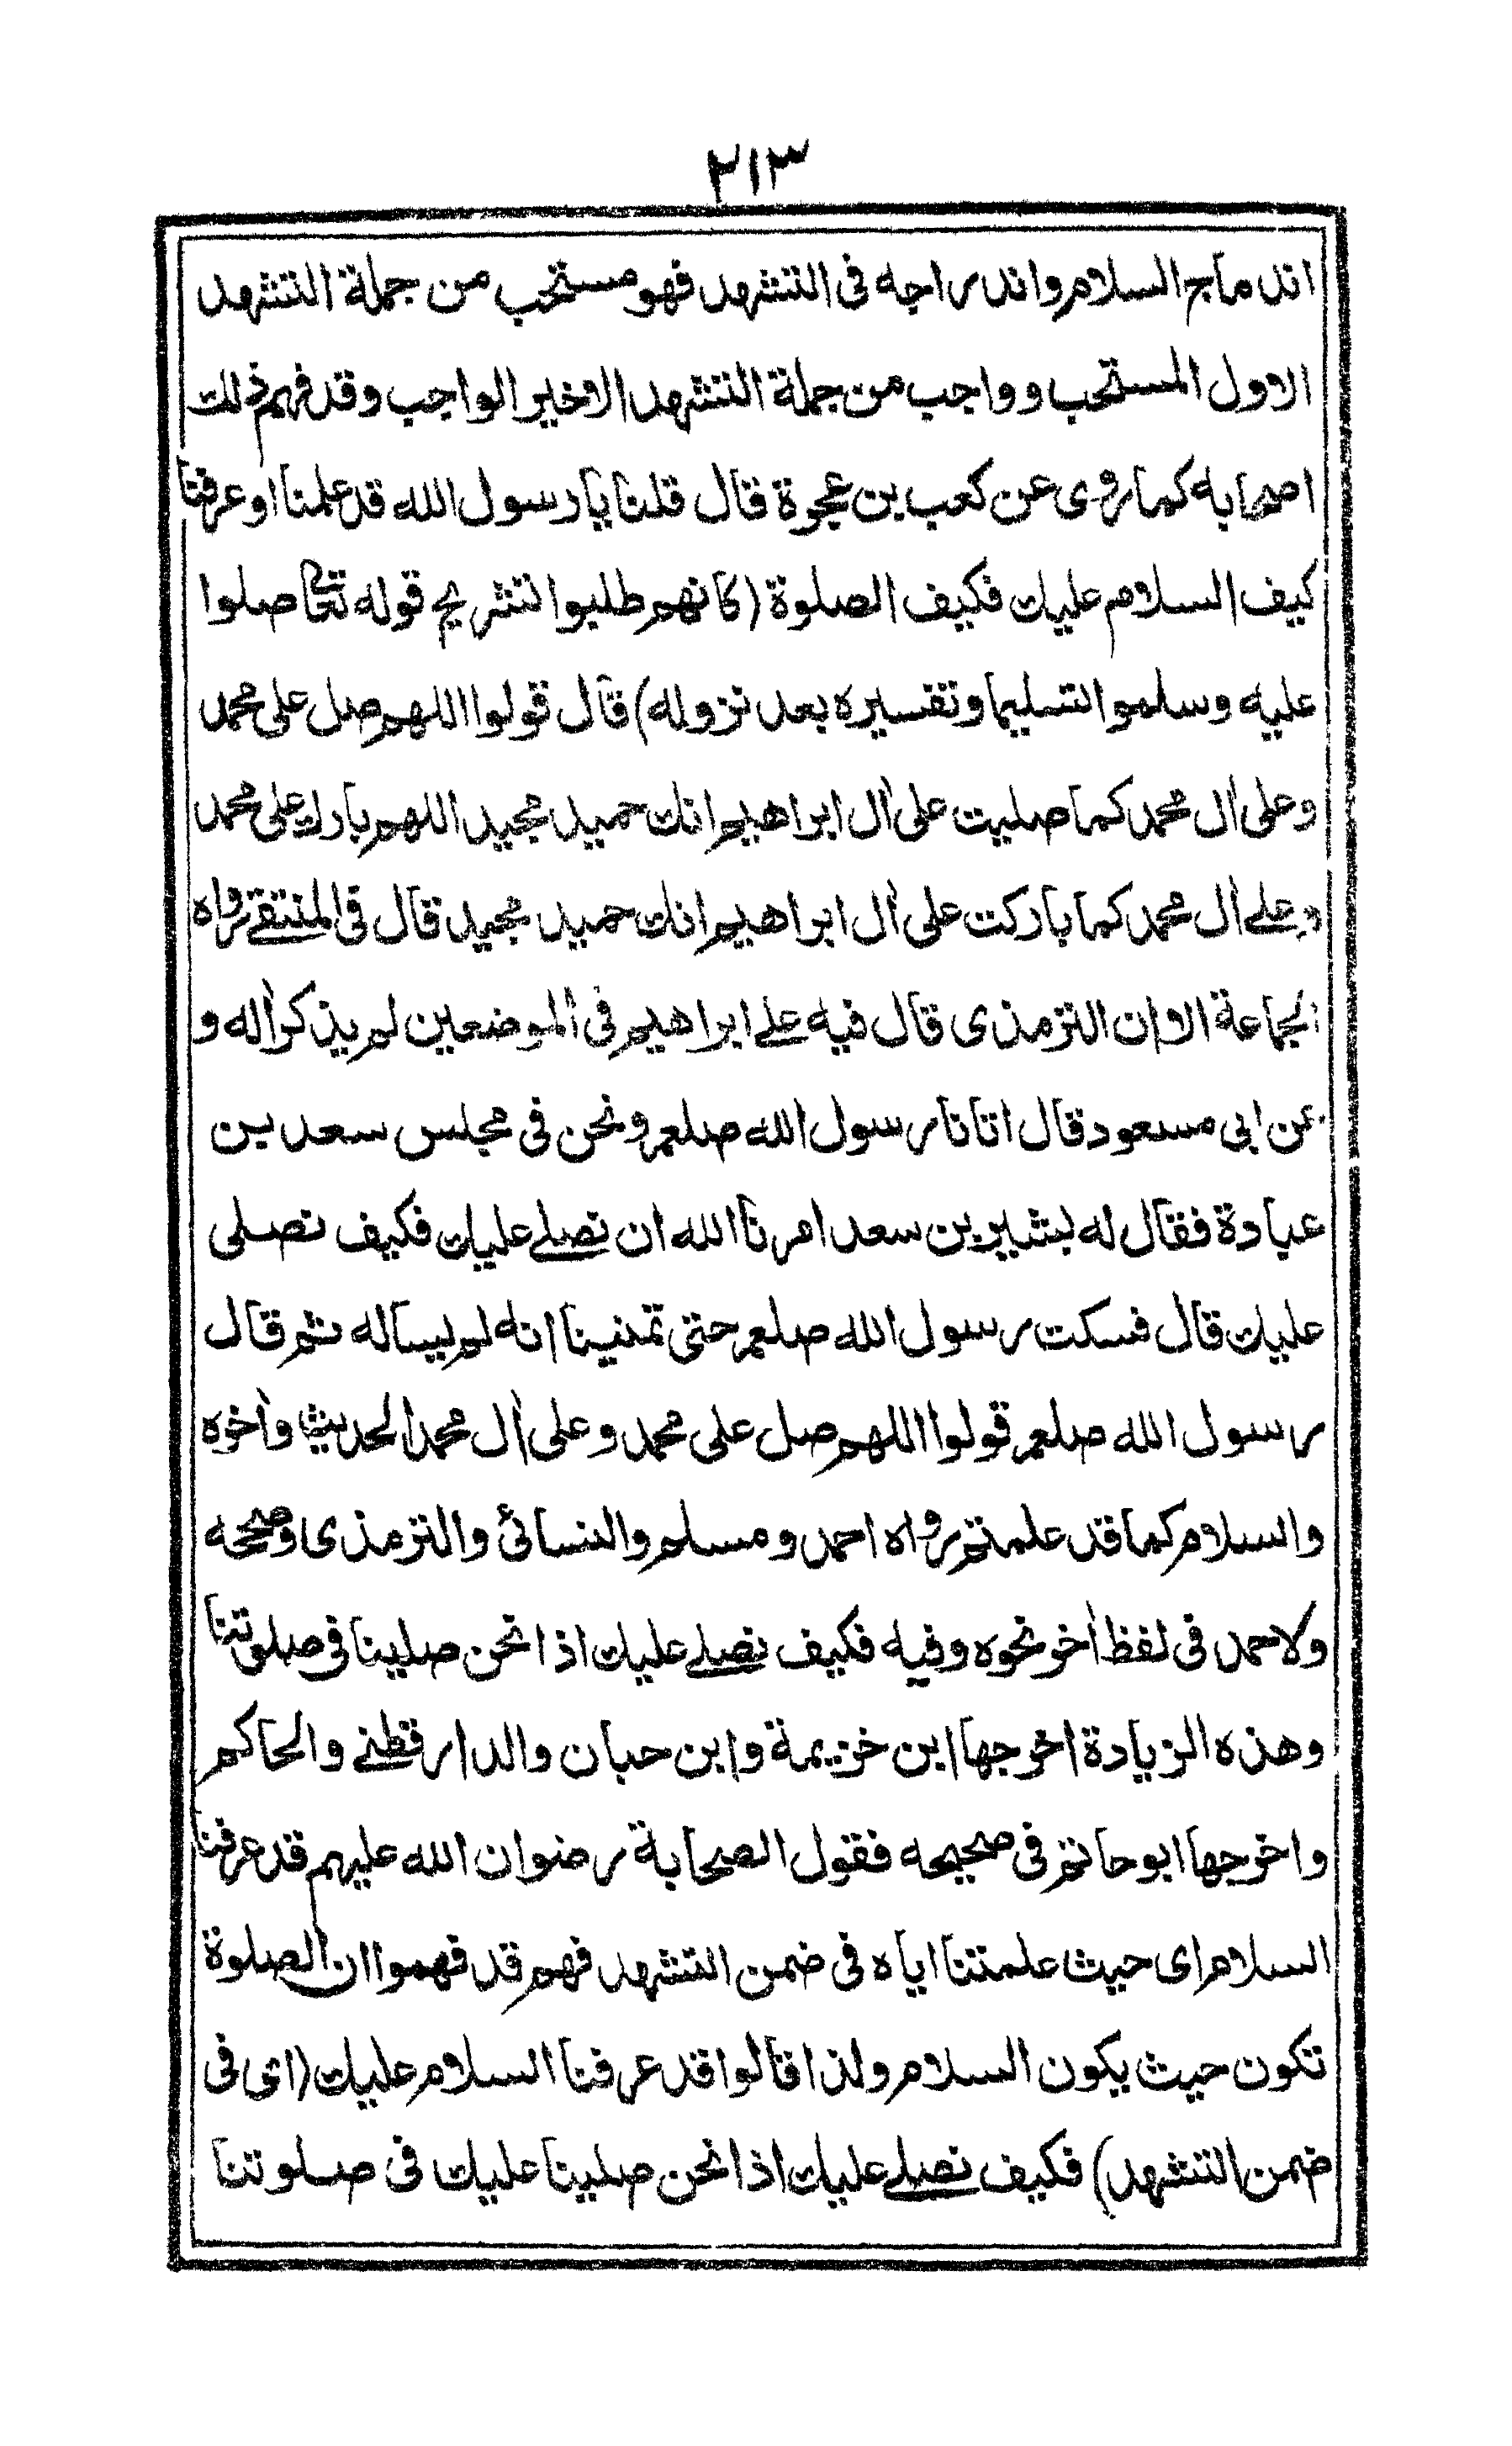 ٢١٣
اندماج السلام واندراجه فى التشهد فهو مستحب من جملة التشهد
الاول المستحب وواجب من جملة التشهد الاخير الواجب وقد فهم ذلك
اصحابه كما روى عن كعب بن عجرة قال قلنا يا رسول الله قد علمنا او عرفنا
كيف السلام عليك فكيف الصلوة (كانهم طلبوا تشريح قوله تعا صلوا
عليه وسلموا تسليما وتفسيره بعد نزوله) قال قولوا اللهم صل على محمد
وعلى اٰل محمد كما صليت على اٰل ابراهيم انك حميد مجيد اللهم بارك على محمد
وعلے اٰل محمد كما باركت على اٰل ابراهيم انك حميد مجيد قال فى المنتقے رواه
الجماعة الا ان الترمذى قال فيه علے ابراهيم فى الموضعين لم يذكر اٰله و
عن ابى مسعود قال اتانا رسول الله صلعم ونحن فى مجلس سعد بن
عبادة فقال له بشير بن سعد امرنا الله ان نصلے عليك فكيف نصلى
عليك قال فسكت رسول الله صلعم حتى تمنينا انه لم يساله ثم قال
رسول الله صلعم قولوا اللهم صل على محمد وعلى اٰل محمد الحديث واٰخره
والسلام كما قد علمتم رواه احمد ومسلم والنسائى والترمذى وصححه
ولاحمد فى لفظ اٰخر نحوه وفيه فكيف نصلے عليك اذا نحن صلينا فى صلوتنا
وهذه الزيادة اخرجها ابن خزيمة وابن حبان والدارقطنے والحاكم
واخرجها ابو حاتم فى صحيحه فقول الصحابة رضوان الله عليهم قد عرفنا
السلام اى حيث علمتنا اياه فى ضمن التشهد فهم قد فهموا ان الصلوة
تكون حيث يكون السلام ولذا قالوا قد عرفنا السلام عليك (اى فى
ضمن التشهد) فكيف نصلے عليك اذا نحن صلينا عليك فى صلوتنا